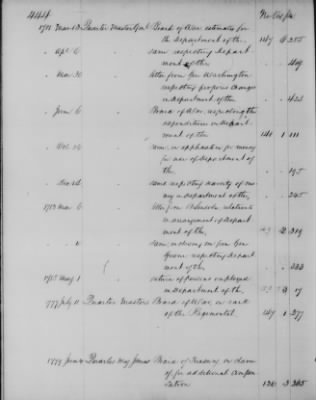 444
No Vol Pa
1781 Mar 13 Quarter Master Genl Board of War estimates for
the Department of the 147 2 255
Apl 6 same respecting Depart-
ment of the 409
Mar 30 letter from Gen Washington
respecting proposed changes
in Department of the 423
June 6 Board of War respecting the
expenditures in Depart-
ment of the 148 1 111
Dec same in application for money
for use of Department of
the 195
same respecting scarcity of mo-
ney in Department of the 245
1783 Mar 6 letter from B Lincoln relative to
in arrangement of Depart
ment of the 2 209
same enclosing one from Gen
Greene respecting Depart
ment of the 233
1785 May 1 return of persons employed
in Department of the 17
1777 July 11 Quarter Masters Board of War on rank
of the Regimental 147 1 277
1779 June 4 Quarles Maj James Board of Treasury on claim
of for additional compen
sation 136 3 365